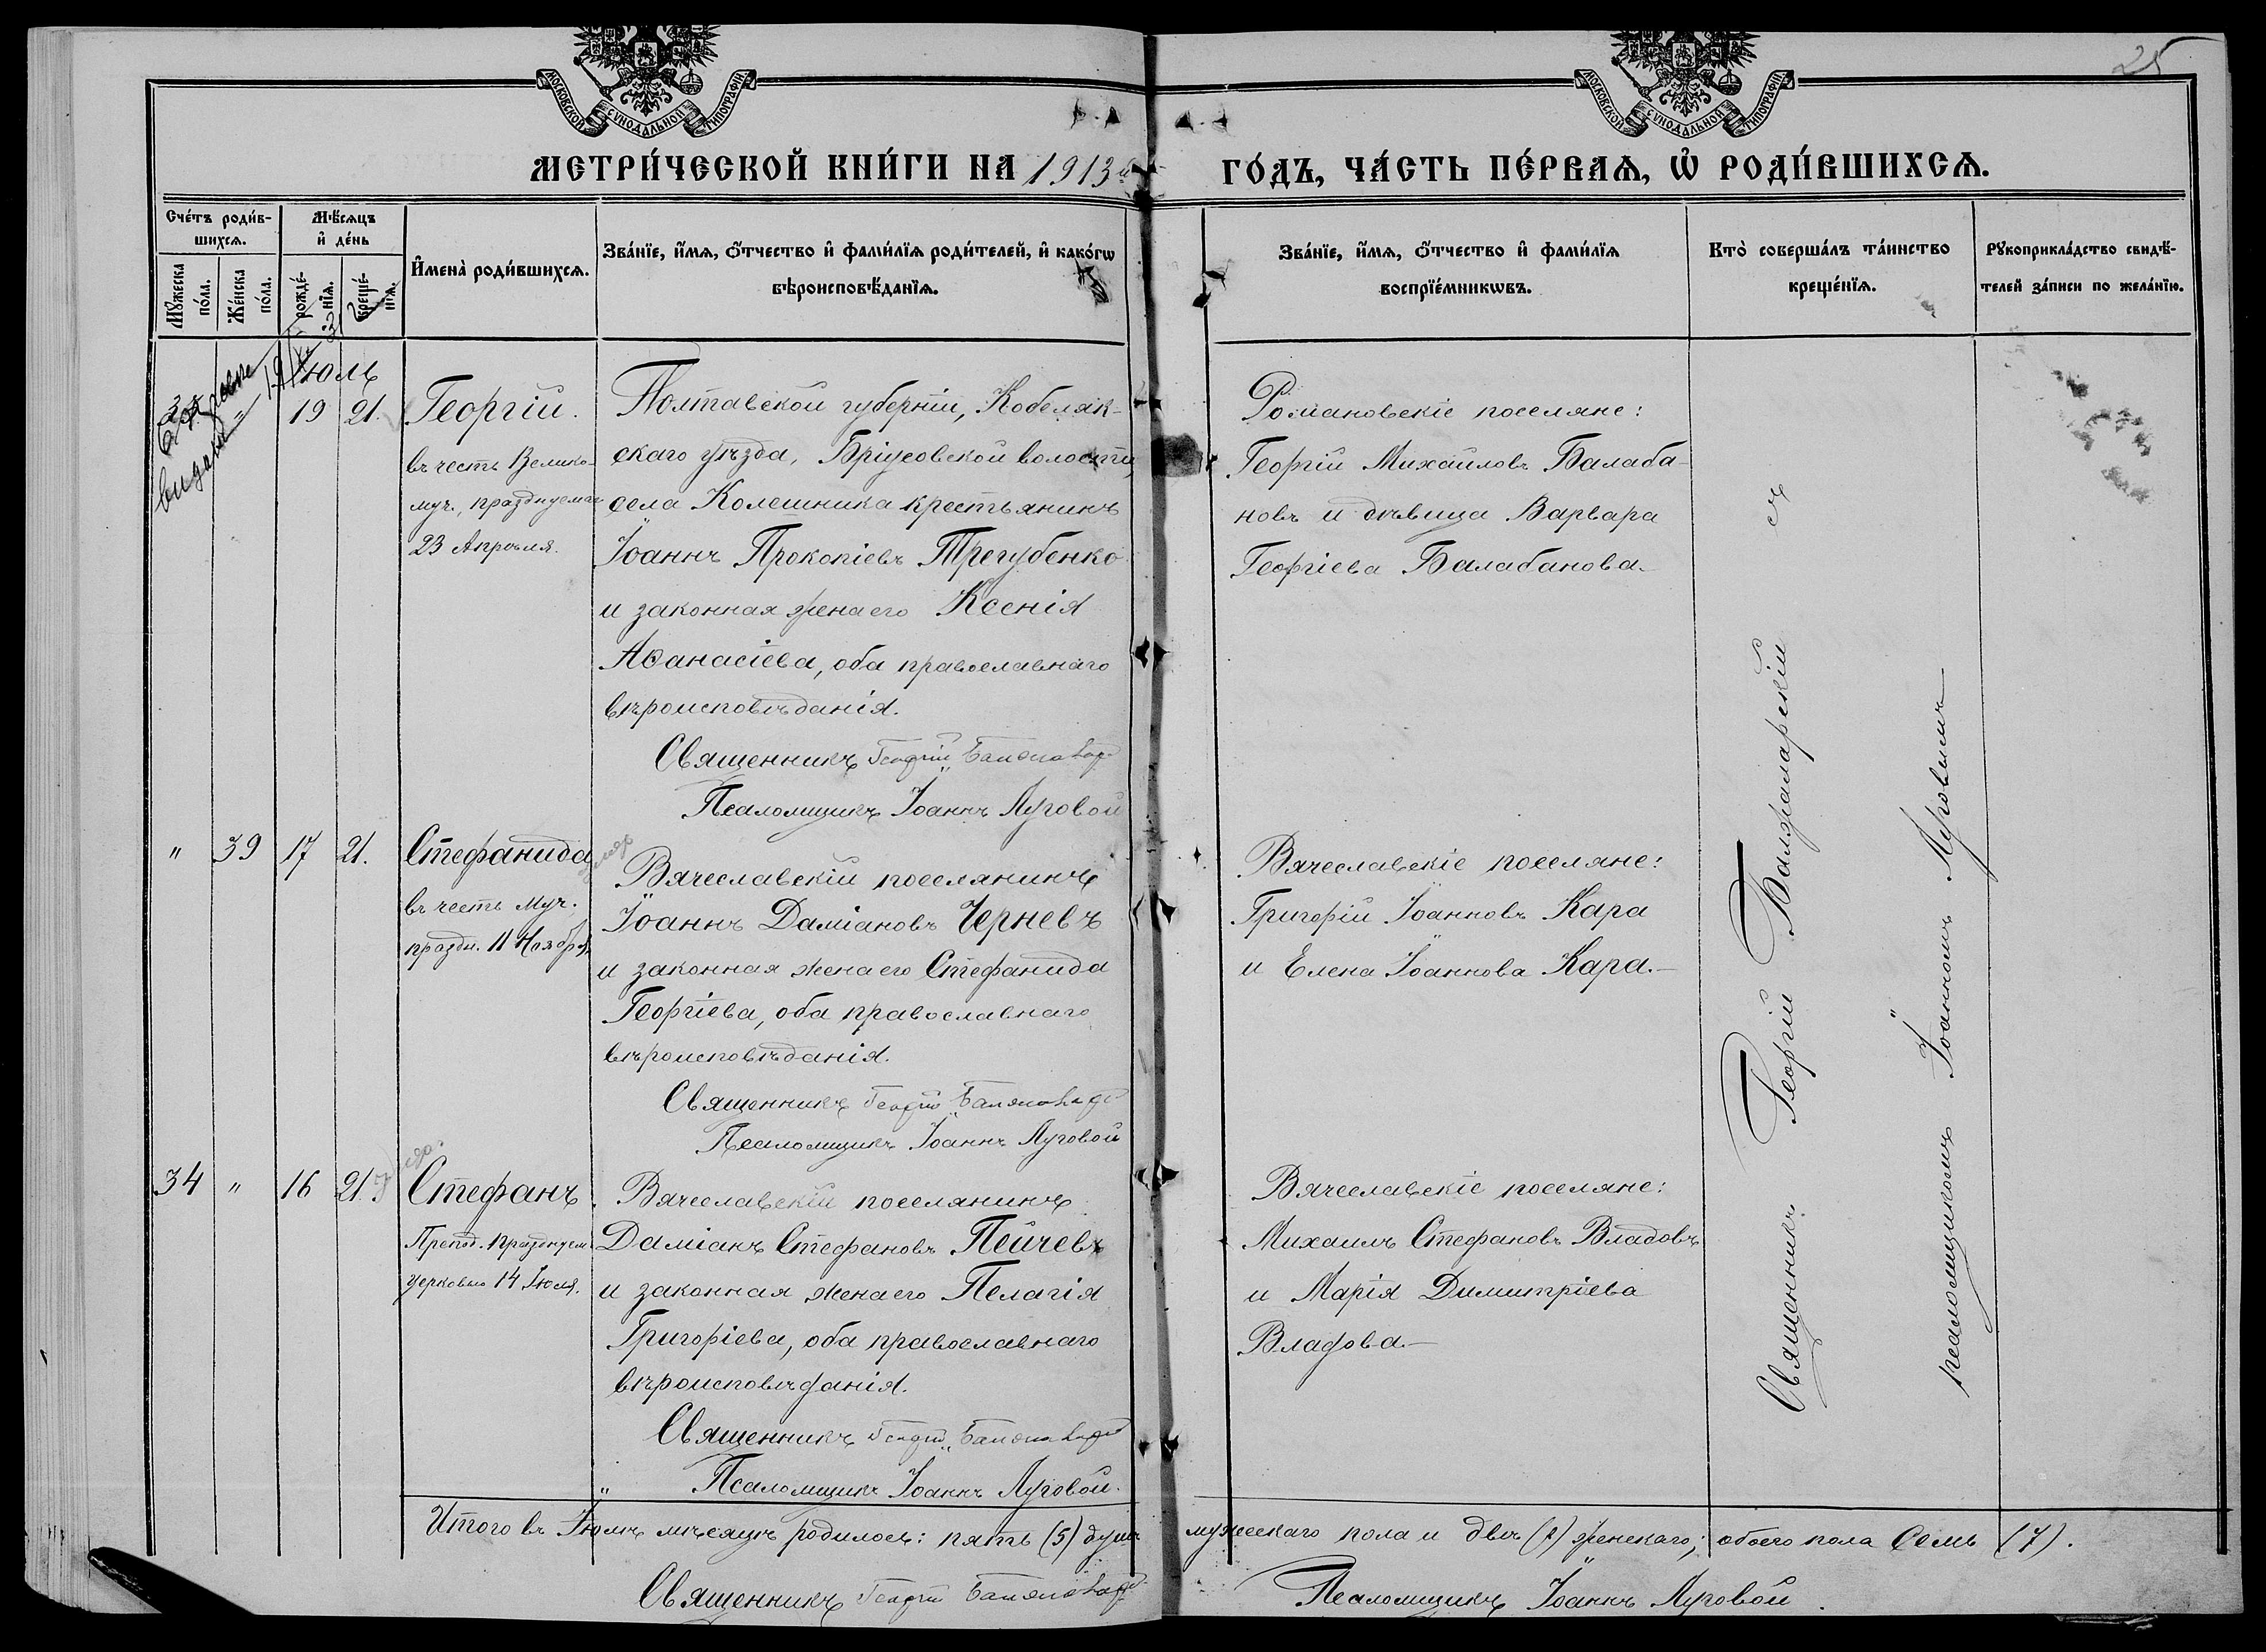 25
МОСКОВСКОЙ СѴНОДАЛЬНОЙ ТИПОГРАФІИ
МОСКОВСКОЙ СѴНОДАЛЬНОЙ ТИПОГРАФІИ
МЕТРИ́ЧЕСКОЙ КНИ́ГИ НА 1913й
ГО́ДЪ, ЧА́СТЬ ПЕ́РВАѦ, Ѽ РОДИ́ВШИХСѦ.
Сче́тъ роди́в-
шихсѧ.
Мꙋ́жеска по́ла.
Же́нска по́ла.
Мѣ́сѧцъ
и҆ де́нь
рожде́-нїѧ.
креще́-нїѧ.
И҆мена̀ роди́вшихсѧ.
Зва́нїе, и҆́мѧ, ѻ҆́тчество и҆ фами́лїѧ роди́телей, и҆ како́гѡ
вѣроисповѣ́данїѧ.
Зва́нїе, и҆́мѧ, ѻ҆́тчество и҆ фами́лїѧ
воспрїе́мникѡвъ.
Кто̀ соверша́лъ та́инство
креще́нїѧ.
Рꙋкоприкла́дство свидѣ́-
телей за́писи по жела́нїю.
Іюль
19 21.
Георгій.
въ честь Велико-
муч., празднуемаго
23 Апрѣля.
Полтавской губерніи, Кобеляк-
скаго уѣзда, Бріусовской волости,
села Колешника крестьянинъ
Іоаннъ Прокопіевъ Трегубенко
и законная жена его Ксенія
Аѳанасіева, оба православнаго
вѣроисповѣданія.
Священникъ Георгій
Псаломщикъ Іоаннъ Луговой
Романовскіе поселяне:
Георгій Михайловъ Балаба-
новъ и дѣвица Варвара
Георгіева Балабанова.
" 39 17 21.
Стефанида
въ честь муч.
праздн. 11 Ноября.
Вячеславскій поселянинъ
Іоаннъ Даміановъ Черневъ
и законная жена его Стефанида
Георгіева, оба православнаго
вѣроисповѣданія.
Священникъ Георгій
Псаломщикъ Іоаннъ Луговой
Вячеславскіе поселяне:
Григорій Іоанновъ Кара
и Елена Іоаннова Кара.
34 " 16 21.
Стефанъ
Препод. празднуем.
церковью 14 Іюля.
Вячеславскій поселянинъ
Даміанъ Стефановъ Пейчевъ
и законная жена его Пелагія
Григоріева, оба православнаго
вѣроисповѣданія.
Священникъ Георгій
Псаломщикъ Іоаннъ Луговой.
Вячеславскіе поселяне:
Михаилъ Стефановъ Владовъ
и Марія Димитріева
Владова.
Священникъ Георгій съ
псаломщикомъ Іоанномъ Луговымъ
Итого въ Іюлѣ мѣсяцѣ родилось: пять (5) душъ мужескаго пола и двѣ (2) женскаго; обоего пола семь (7).
Священникъ Георгій
Псаломщикъ Іоаннъ Луговой.